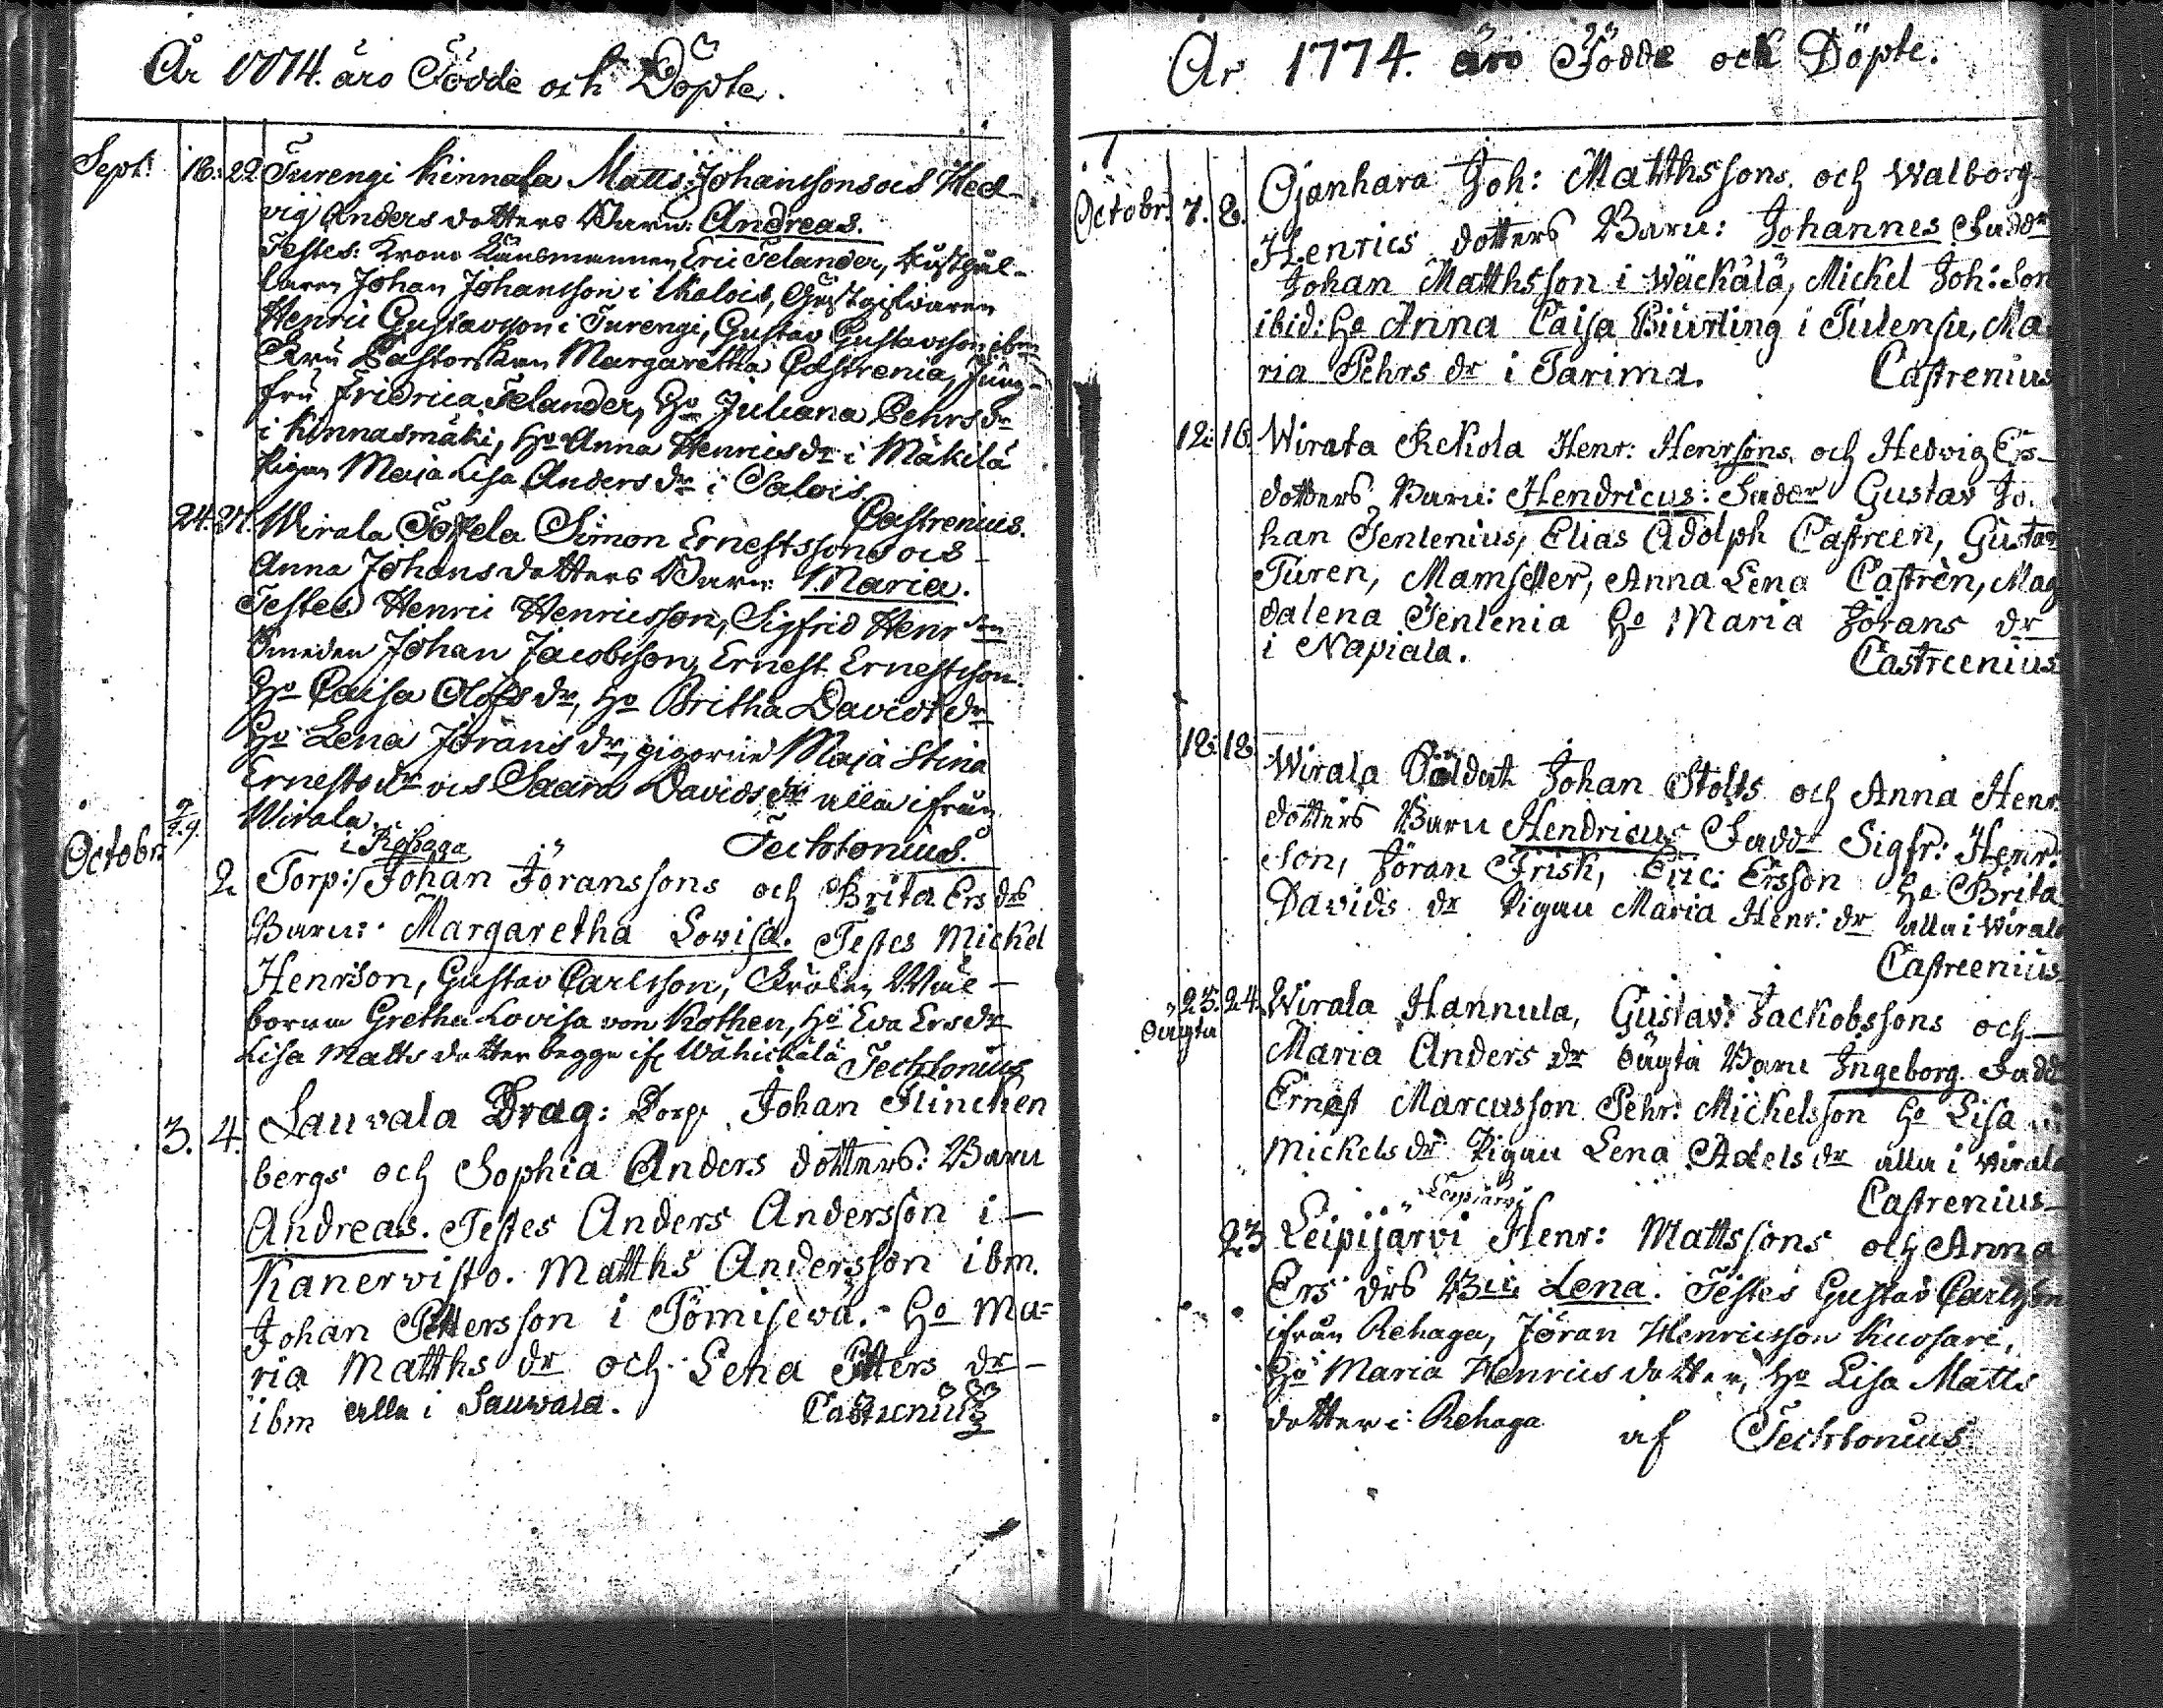 År 1774. äro Födde och Döpte.
Sept: 18: 22 Turengi Kinnala Matts Johanssons och Hed-
vig Anders dotters Barn: Andreas.
Testes: Krono Länsmannen Eric Telander, Rustgål-
laren Johan Johansson i Salois, Gästgifvaren
Henric Gustavsson i Turengi, Gustav Gustavsson ibm
Fru Pastorskan Margaretha Castrenia, Jung-
fru Fridrica Telander, Ho Juliana Pehrs dr
i Kinnasmäki, Ho Anna Henrics dr i Mäkilä
Pigan Maja Lisa Anders dr i Salois
Castrenius.
24. 27. Wirala Simon Ernestssons och
Anna Johans dotters Barn: Maria.
Testes Henric Henricsson, Sigfrid Henr Son
Smeden Johan Jacobsson, Ernest Ernestsson.
Ho Caisa Olofs dr, Ho Britha Davids dr
Ho Lena Jörans dr, pigorne Maja Stina
Ernests dr och Saara Davids dr alla ifrån
Wirala.
Tecktonius.
i Rehaga
Octobr 2 Torp: Johan Göranssons och Brita Ers drs
Barn: Margaretha Lovisa. Testes Mickel
Henrson, Gustav Carlsson, Fröken Wäl-
borna Gretha Lovisa von Kothen, Ho Eva Ers dr
Lisa Matts dotter begge ifr Wähickälä Tecktonius
3. 4. Sauvala Drag: Torp: Johan Flincken
bergs och Sophia Anders dotters: Barn
Andreas. Testes Anders Andersson i
Kanervisto. Matths Andersson ibm.
Johan Pettersson i Tömisewä. Ho Ma=
ria Matths dr och Lena Petters dr
ibm alla i Sauwala. Castrenius
År 1774. äro Födde och Döpte.
Octobr. 7. 8. Ojanhara Joh: Matthssons och Walborg
Henrics dotters Barn: Johannes Faddr
Johan Matthsson i Wäckälä, Mickel Joh: Son
ibid: Ho Anna Caisa Biürling i Tulensu, Ma
ria Pehrs dr i Tarima. Castrenius
12: 16. Wirala Rekola Henr: Henrsons och Hedvig Ers
dotters Barn: Hendricus: Fadder Gustav Jo.
han Tenlenius, Elias Adolph Castreen, Gustav
Turen, Mamseller, Anna Lena Castrèn, Mag
dalena Tenlenia Ho Maria Jörans dr
i Napiala. Castreenius
18: 18 Wirala Soldat Johan Stolts och Anna Henr
dotters Barn Hendricus Faddr Sigfr: Henr:
son, Jöran Frisk, Eric: Ersson Ho Brita
Davids dr Pigan Maria Henr: dr alla i Wirala
Castreenius
23. 24. Wirala Hannula, Gustav: Jackobssons och
oägta
Maria Anders dr oägta Barn Ingeborg Fadd
Ernest Marcusson Pehr: Mickelsson Ho Lisa
Mickels dr Pigan Lena Axels dr alla i Wirala
Castrenius
Leipijärvi
23 Leipijärvi Henr: Mattssons och Anna
Ers drs Bn: Lena. Testes Gustav Carlsson
ifrån Rehaga, Jöran Henricsson Kuosari,
Ho Maria Henrics dotter, Ho Lisa Matts
dotter i Rehaga af Tecktonius